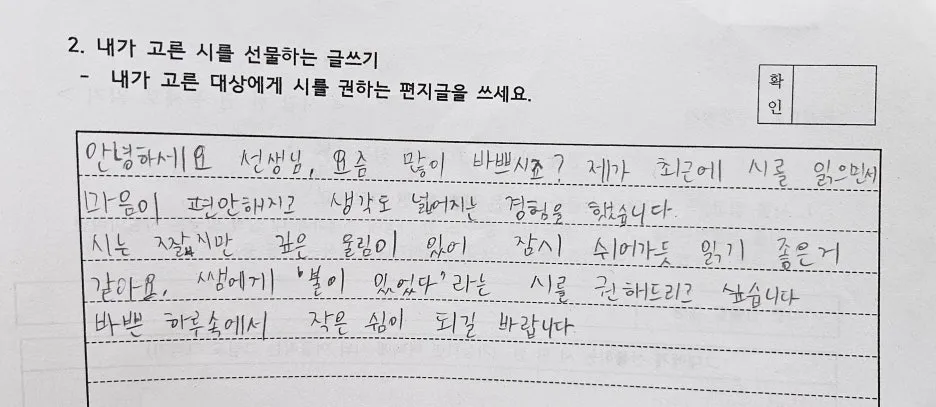 2. 내가 고른 시를 선물하는 글쓰기
- 내가 고른 대상에게 시를 권하는 편지글을 쓰세요.
확인
안녕하세요 선생님, 요즘 많이 바쁘시죠? 제가 최근에 시를 읽으면서
마음이 편안해지고 생각도 넓어지는 경험을 했습니다.
시는 짧지만 깊은 울림이 있어 잠시 쉬어가듯 읽기 좋은거
같아요. 쌤에게 "불이 있었다"라는 시를 권해드리고 싶습니다
바쁜 하루속에서 작은 쉼이 되길 바랍니다.